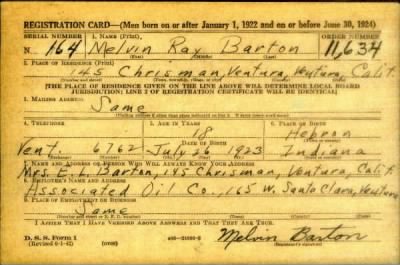 REGISTRATION CARD—(Men born on or after January 1, 1922 and on or before June 30, 1924)
SERIAL NUMBER 1. NAME (Print) ORDER NUMBER
N 164 Melvin Ray Barton 11,634
(First) (Middle) (Last)
2. PLACE OF RESIDENCE (Print)
145 Chrisman, Ventura, Ventura, Calif.
[THE PLACE OF RESIDENCE GIVEN ON THE LINE ABOVE WILL DETERMINE LOCAL BOARD
JURISDICTION; LINE 2 OF REGISTRATION CERTIFICATE WILL BE IDENTICAL]
3. MAILING ADDRESS
Same
4. TELEPHONE 5. AGE IN YEARS 6. PLACE OF BIRTH
18 Hebron
DATE OF BIRTH
Vent. 6762 July 26 1923 Indiana
7. NAME AND ADDRESS OF PERSON WHO WILL ALWAYS KNOW YOUR ADDRESS
Mrs. E. L. Barton, 145 Chrisman, Ventura, Calif.
8. EMPLOYER'S NAME AND ADDRESS
Associated Oil Co., 165 W. Santa Clara, Ventura
9. PLACE OF EMPLOYMENT OR BUSINESS
Same
I AFFIRM THAT I HAVE VERIFIED ABOVE ANSWERS AND THAT THEY ARE TRUE.
D. S. S. Form 1
(Revised 6-1-42) (over)
Melvin Barton